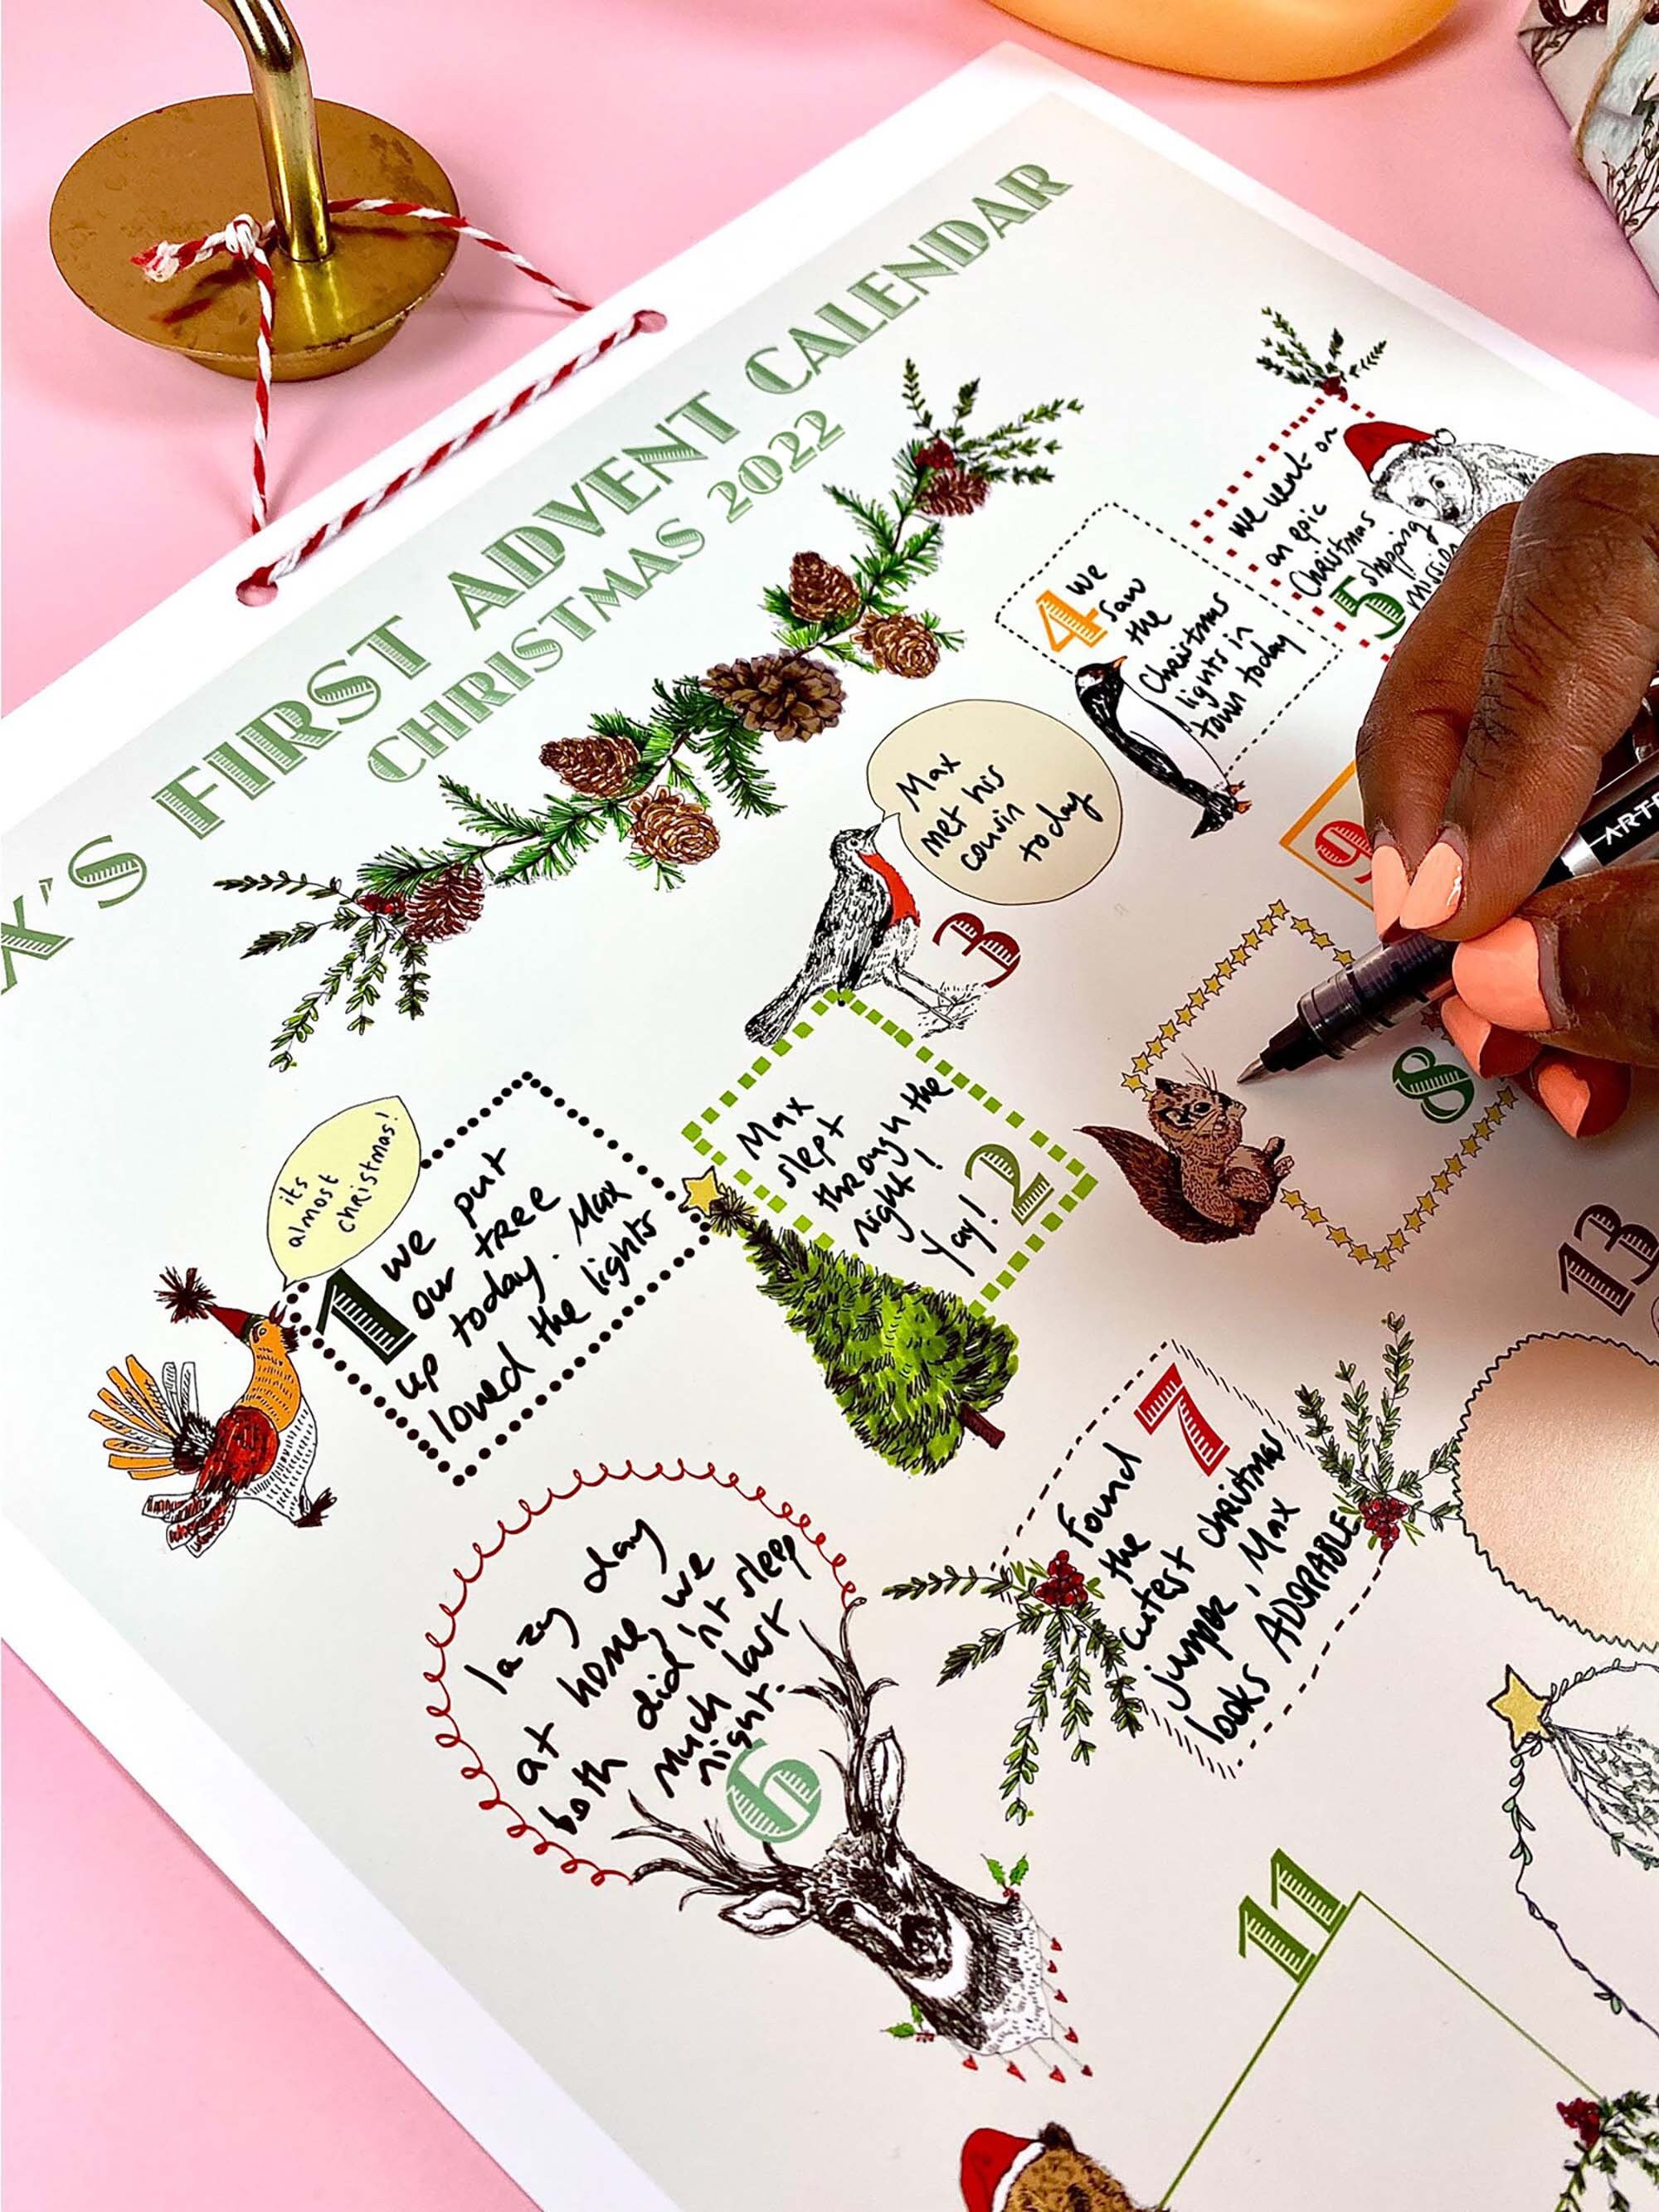 X'S FIRST ADVENT CALENDAR
CHRISTMAS 2022
its
almost
christmas!
1
we put
our tree
up today. Max
loved the lights
Max
slept
through the
night!
Yay!
2
Max
met his
cousin
today
3
4
We
saw
the
Christmas
lights in
town today
we went on
an epic
Christmas
shopping
mission
5
lazy day
at home, we
both did'nt sleep
much last
night.
6
7
Found
the
cutest christmas
jumper, Max
looks ADORABLE
8
9
11
13
ART